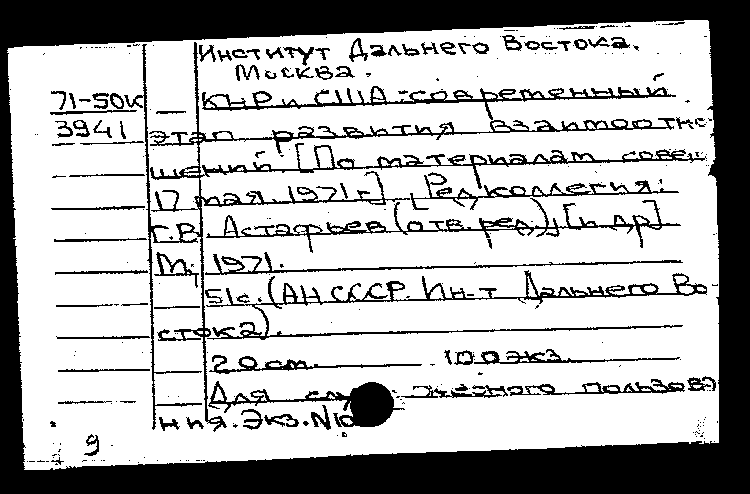 Институт Дальнего Востока.
Москва.
71-50к КНР и США: современный
3941 этап развития взаимоотно-
шений. [По материалам совещ.
17 мая. 1971 г.]. [Редколлегия:
Г.В. Астафьев (отв. ред.), [и др].
М., 1971.
51с. (АН СССР. Ин-т Дальнего Во-
стока).
20 см. 100 экз.
Для жебного пользова
ния. Экз. N10
9